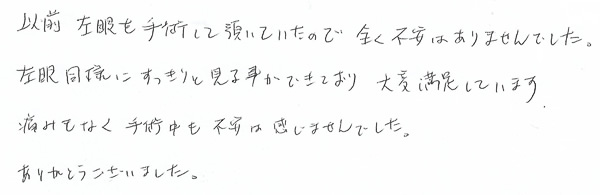 以前 左眼も手術して頂いていたので 全く不安はありませんでした。
左眼同様に すっきりと見る事ができており 大変満足しています。
痛みもなく 手術中も 不安は感じませんでした。
ありがとうございました。